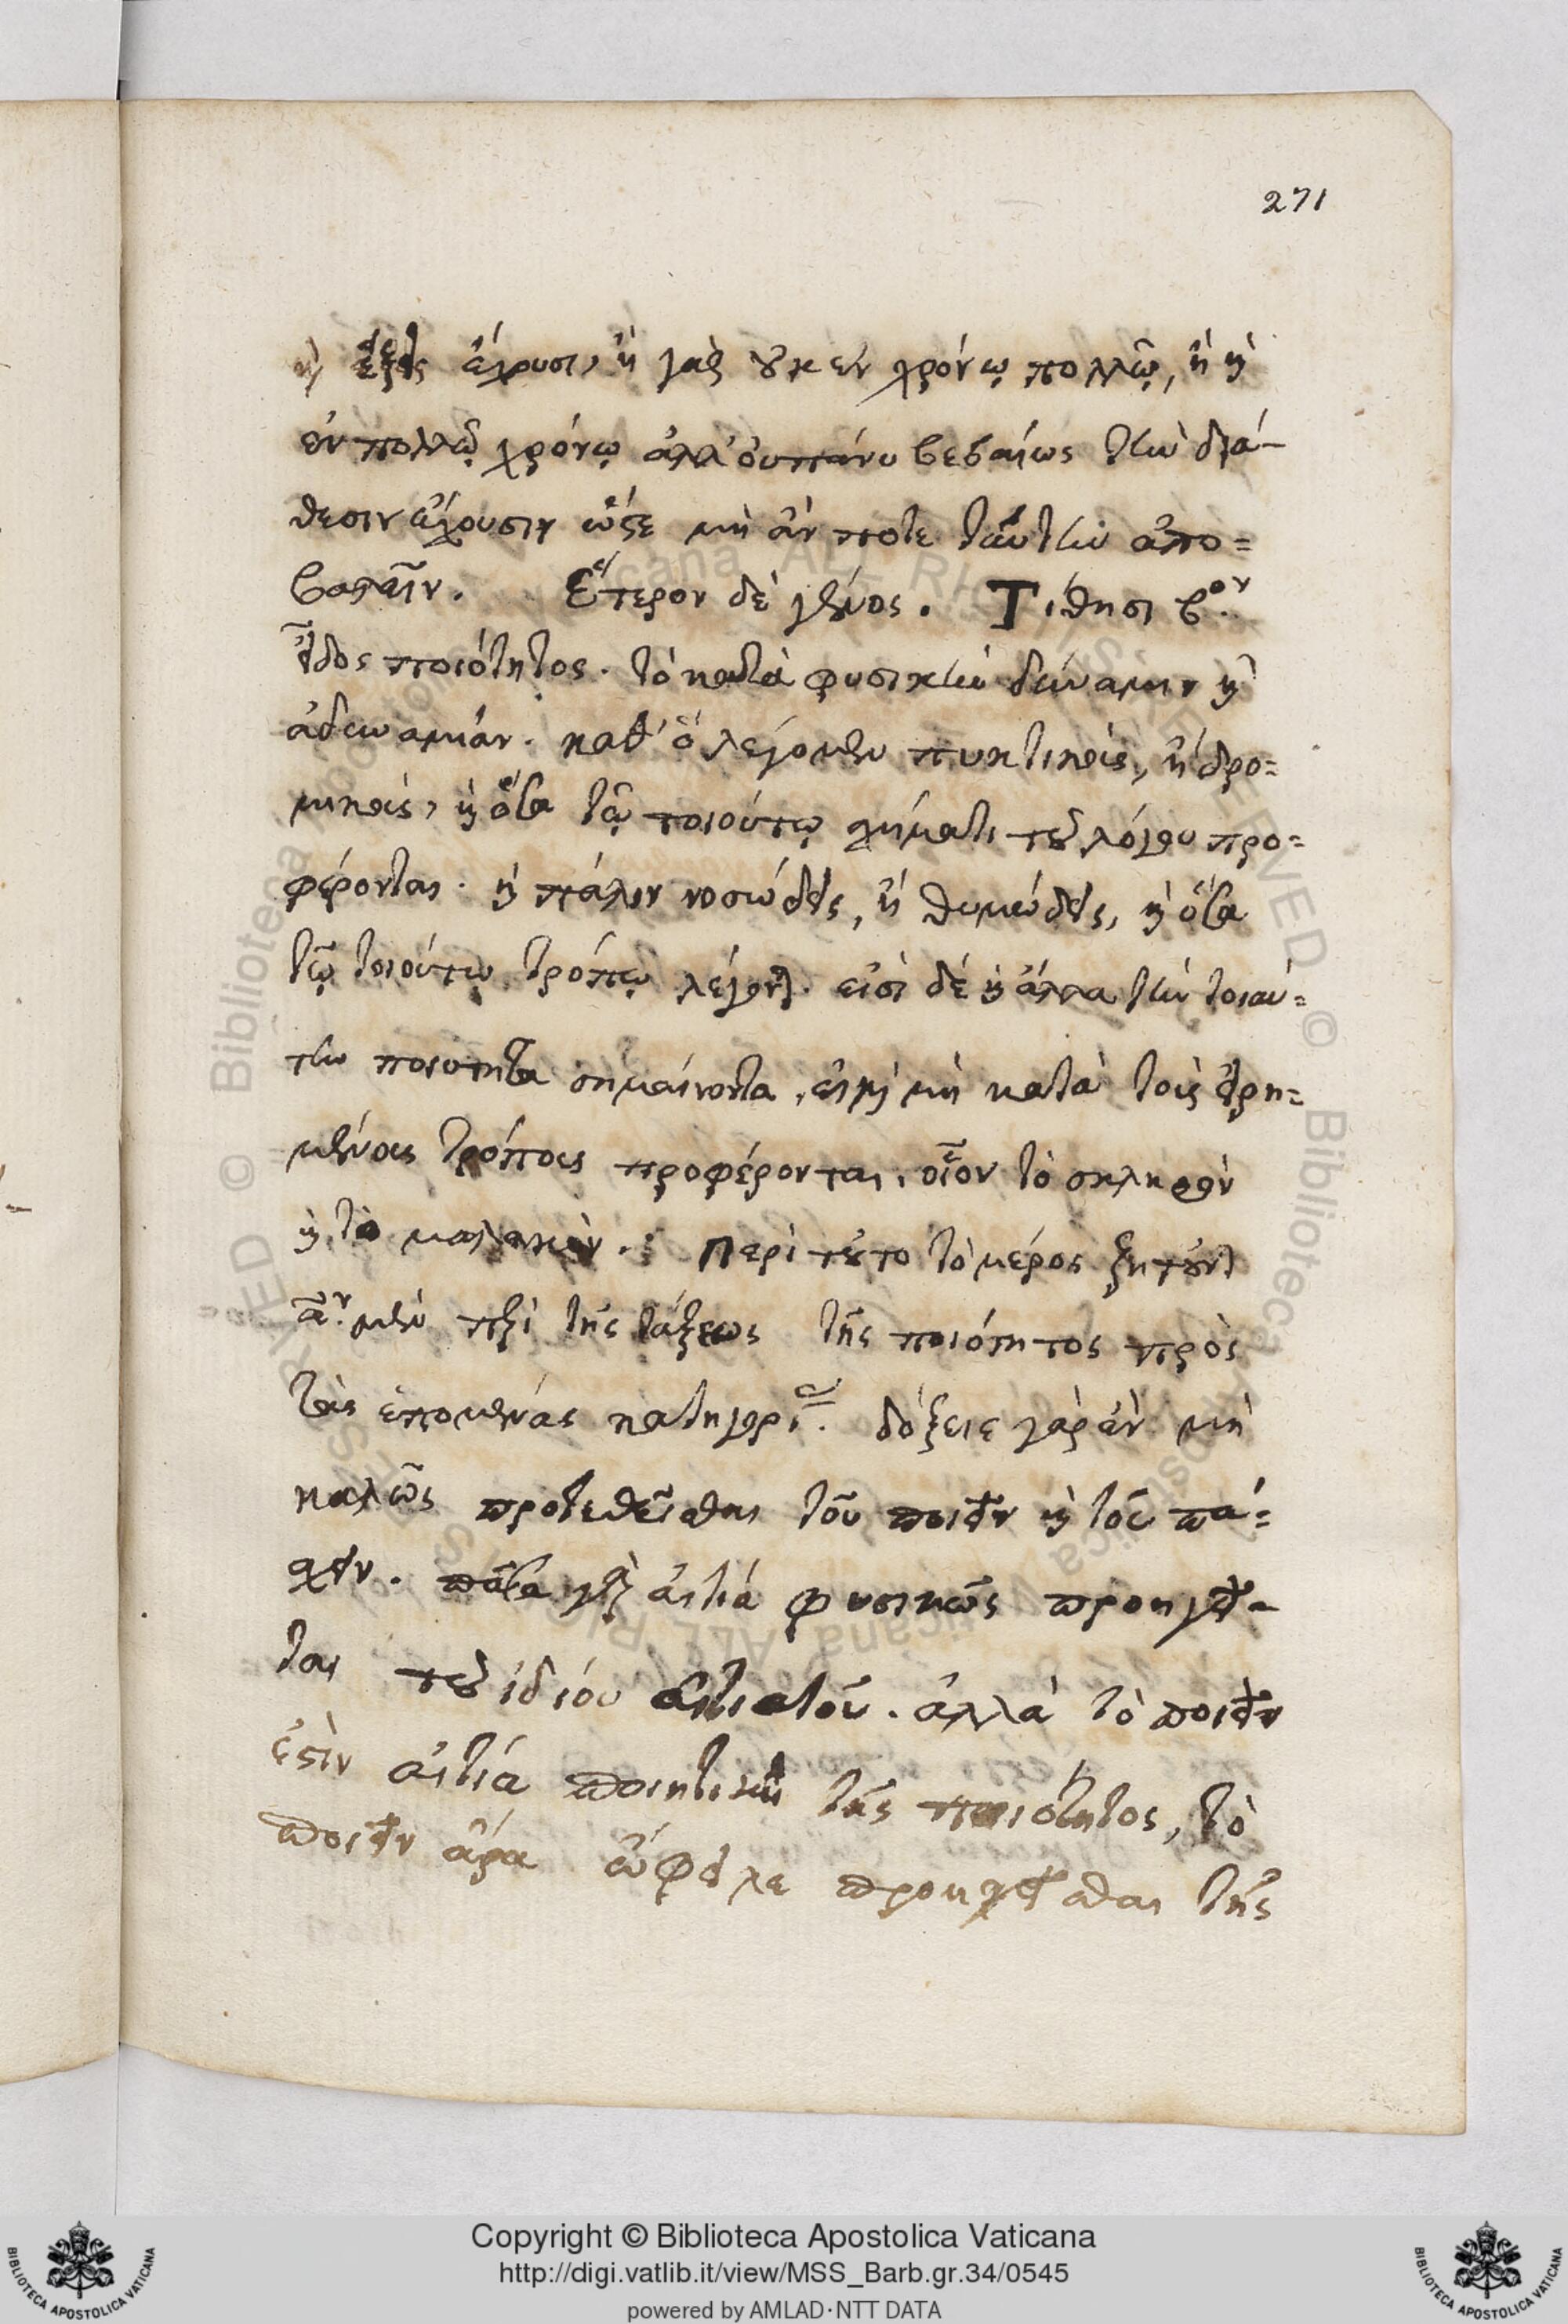 271
ἢ ἕξεις ἔχουσι, ἢ γὰρ οὐκ ἐν χρόνῳ πολλῷ, ἢ καὶ
ἐν πολλῷ χρόνῳ ἀλλ' οὐ πάνυ βεβαίως τὴν διά-
θεσιν ἔχουσιν ὥστε μὴ ἄν ποτε ταύτην ἀπο=
βαλεῖν. Ἕτερον δὲ γένος. Τίθησι β.ον
εἶδος ποιότητος. τὸ κατὰ φυσικὴν δύναμιν καὶ
ἀδυναμίαν. καθ' ὃ λέγομεν πυκτικοὺς, ἢ δρο=
μικοὺς, καὶ ὅσα τῷ τοιούτῳ σχήματι τοῦ λόγου προ=
φέρονται. καὶ πάλιν νοσώδεις, ἢ θυμώδεις, καὶ ὅσα
τῷ τοιούτῳ τρόπῳ λέγονται. εἰσὶ δὲ καὶ ἄλλα τὴν τοιαύ=
την ποιότητα σημαίνοντα, εἰ καὶ μὴ κατὰ τοὺς εἰρη=
μένους τρόπους προφέρονται. οἷον τὸ σκληρὸν
καὶ τὸ μαλακὸν. Περὶ τοῦτο τὸ μέρος ζητοῦνται
α.ν μὲν περὶ τῆς τάξεως τῆς ποιότητος πρὸς
τὰς ἑπομένας κατηγορί. δόξειε γὰρ ἂν μὴ
καλῶς προτεθεῖσθαι τοῦ ποιεῖν καὶ τοῦ πά=
σχειν. πᾶσα γὰρ αἰτία φυσικῶς προηγεῖ-
ται τοῦ ἰδίου αἰτιατοῦ. ἀλλὰ τὸ ποιεῖν
ἐστὶν αἰτία ποιητικὴ τῆς ποιότητος, τὸ
ποιεῖν ἄρα ὤφειλε προηγεῖσθαι τῆς
Copyright © Biblioteca Apostolica Vaticana
http://digi.vatlib.it/view/MSS_Barb.gr.34/0545
powered by AMLAD·NTT DATA